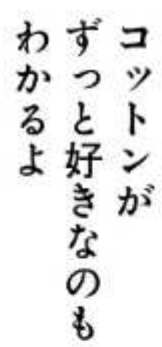 コットンが
ずっと好きなのも
わかるよ